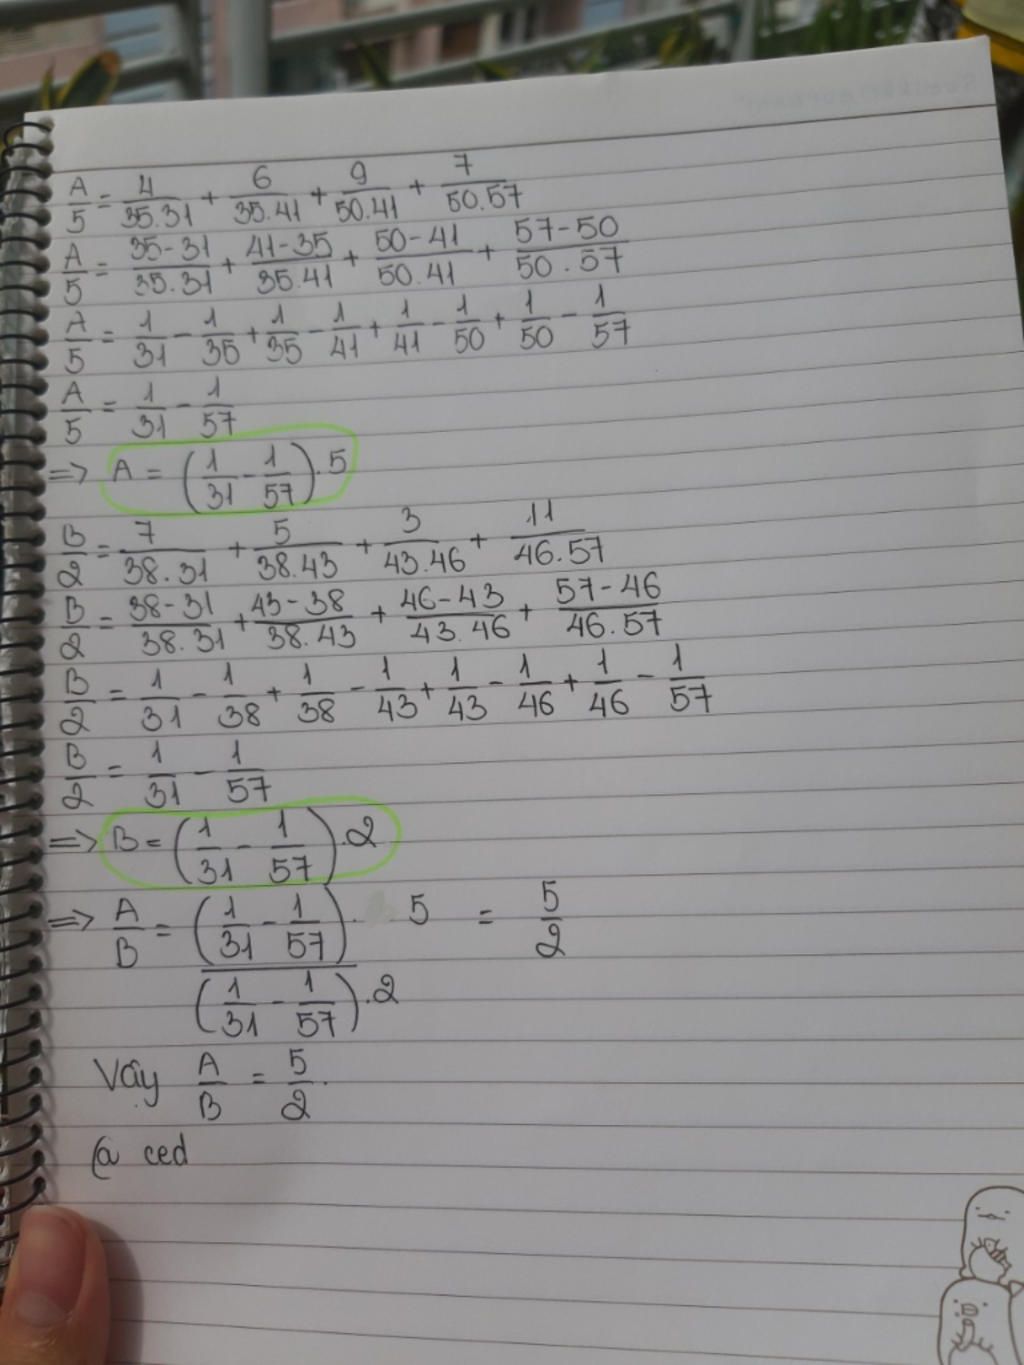 A/5 = 4/35.31 + 6/35.41 + 9/50.41 + 7/50.57
A/5 = 35-31/35.31 + 41-35/35.41 + 50-41/50.41 + 57-50/50.57
A/5 = 1/31 - 1/35 + 1/35 - 1/41 + 1/41 - 1/50 + 1/50 - 1/57
A/5 = 1/31 - 1/57
=> A = (1/31 - 1/57).5
B/2 = 7/38.31 + 5/38.43 + 3/43.46 + 11/46.57
B/2 = 38-31/38.31 + 43-38/38.43 + 46-43/43.46 + 57-46/46.57
B/2 = 1/31 - 1/38 + 1/38 - 1/43 + 1/43 - 1/46 + 1/46 - 1/57
B/2 = 1/31 - 1/57
=> B = (1/31 - 1/57).2
=> A/B = (1/31 - 1/57). 5/(1/31 - 1/57).2 = 5/2
Vậy A/B = 5/2.
@ ced